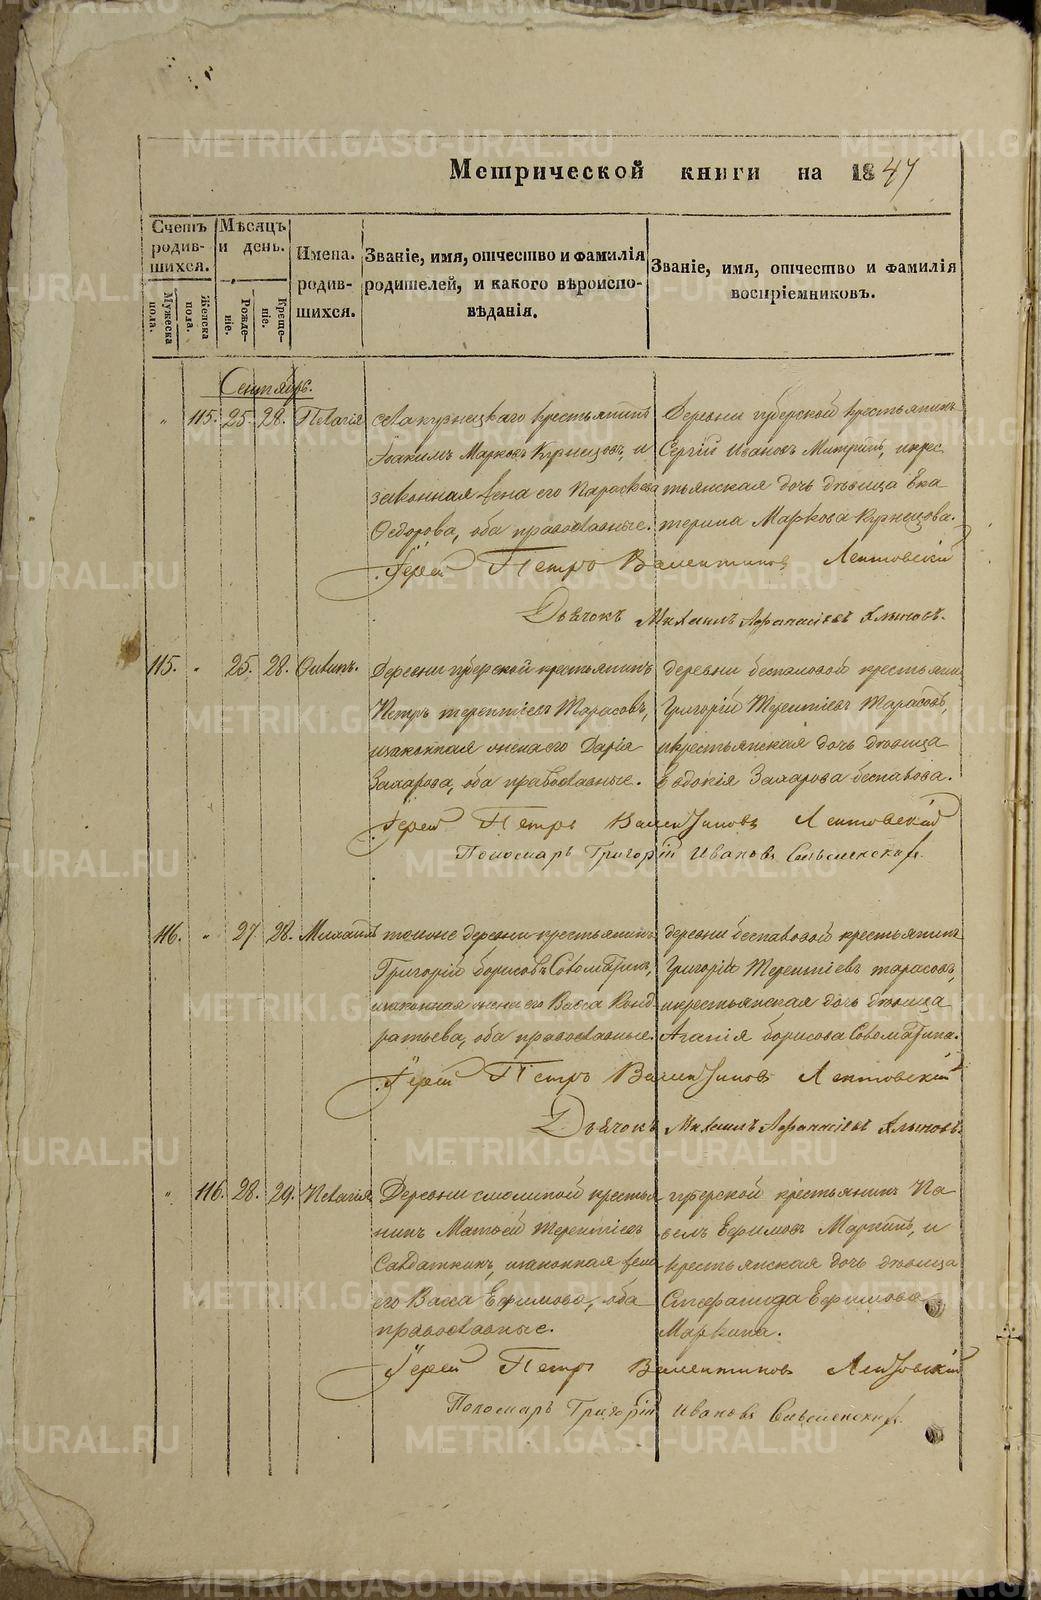 Метрической книги на 1847
Счетъ родившихся.
Мѣсяцъ и день.
Имена родившихся.
Званіе, имя, отчество и фамилія родителей, и какого вѣроисповѣданія.
Званіе, имя, отчество и фамилія воспріемниковъ.
Мужеска пола.
Женска пола.
Рожденіе.
Крещеніе.
Сентябрь.
" 115. 25. 28. Пелагія села кузнецкаго крестьянинъ
Іоакимъ Марковъ Кузнецовъ, и
законная жена его Параскева
Ѳедорова, оба православные.
Деревни губерской крестьянинъ
Сергій Ивановъ Митринъ, и кре
тьянская дочь дѣвица Ека
терина Маркова Кузнецова.
Іерей Петръ Валентиновъ Лентовскій
Дьячокъ Михаилъ Афанасіевъ Хлыновъ.
115. " 25. 28. Филипъ. Деревни губерской крестьянинъ
Петръ терентіевъ Тарасовъ,
изаконная жена его Дарія
Захарова, оба православные.
деревни беспаловой крестьяни
Григорій Терентіевъ Тарасовъ,
икрестьянская дочь дѣвица
Евдокія Захарова беспалова.
Іерей Петръ Валентиновъ Лентовскій
Пономарь Григорій Ивановъ
116. " 27 28. Михаилъ тойже деревни крестьянинъ
Григорій борисовъ
изаконная жена его Васса Конд
ратьева, оба православные.
деревни беспаловой крестьянинъ
Григорій Терентіевъ тарасовъ,
икрестьянская дочь дѣвица
Агапія борисова
Іерей Петръ Валентиновъ Лентовскій
Дьячокъ Михаилъ Афанасіевъ Хлыновъ.
" 116. 28. 29. Пелагія Деревни смолиной крестья
нинъ Матвей терентіевъ
Салдаткинъ, изаконная жена
его Васса Ефимова, оба
православные.
губерской крестьянинъ Па
велъ Ефимовъ Маркинъ, и
крестьянская дочь дѣвица
Ефимова
Маркина.
Іерей Петръ Валентиновъ Лентовскій
Пономарь Григорій Ивановъ
METRIKI.GASO-URAL.RU